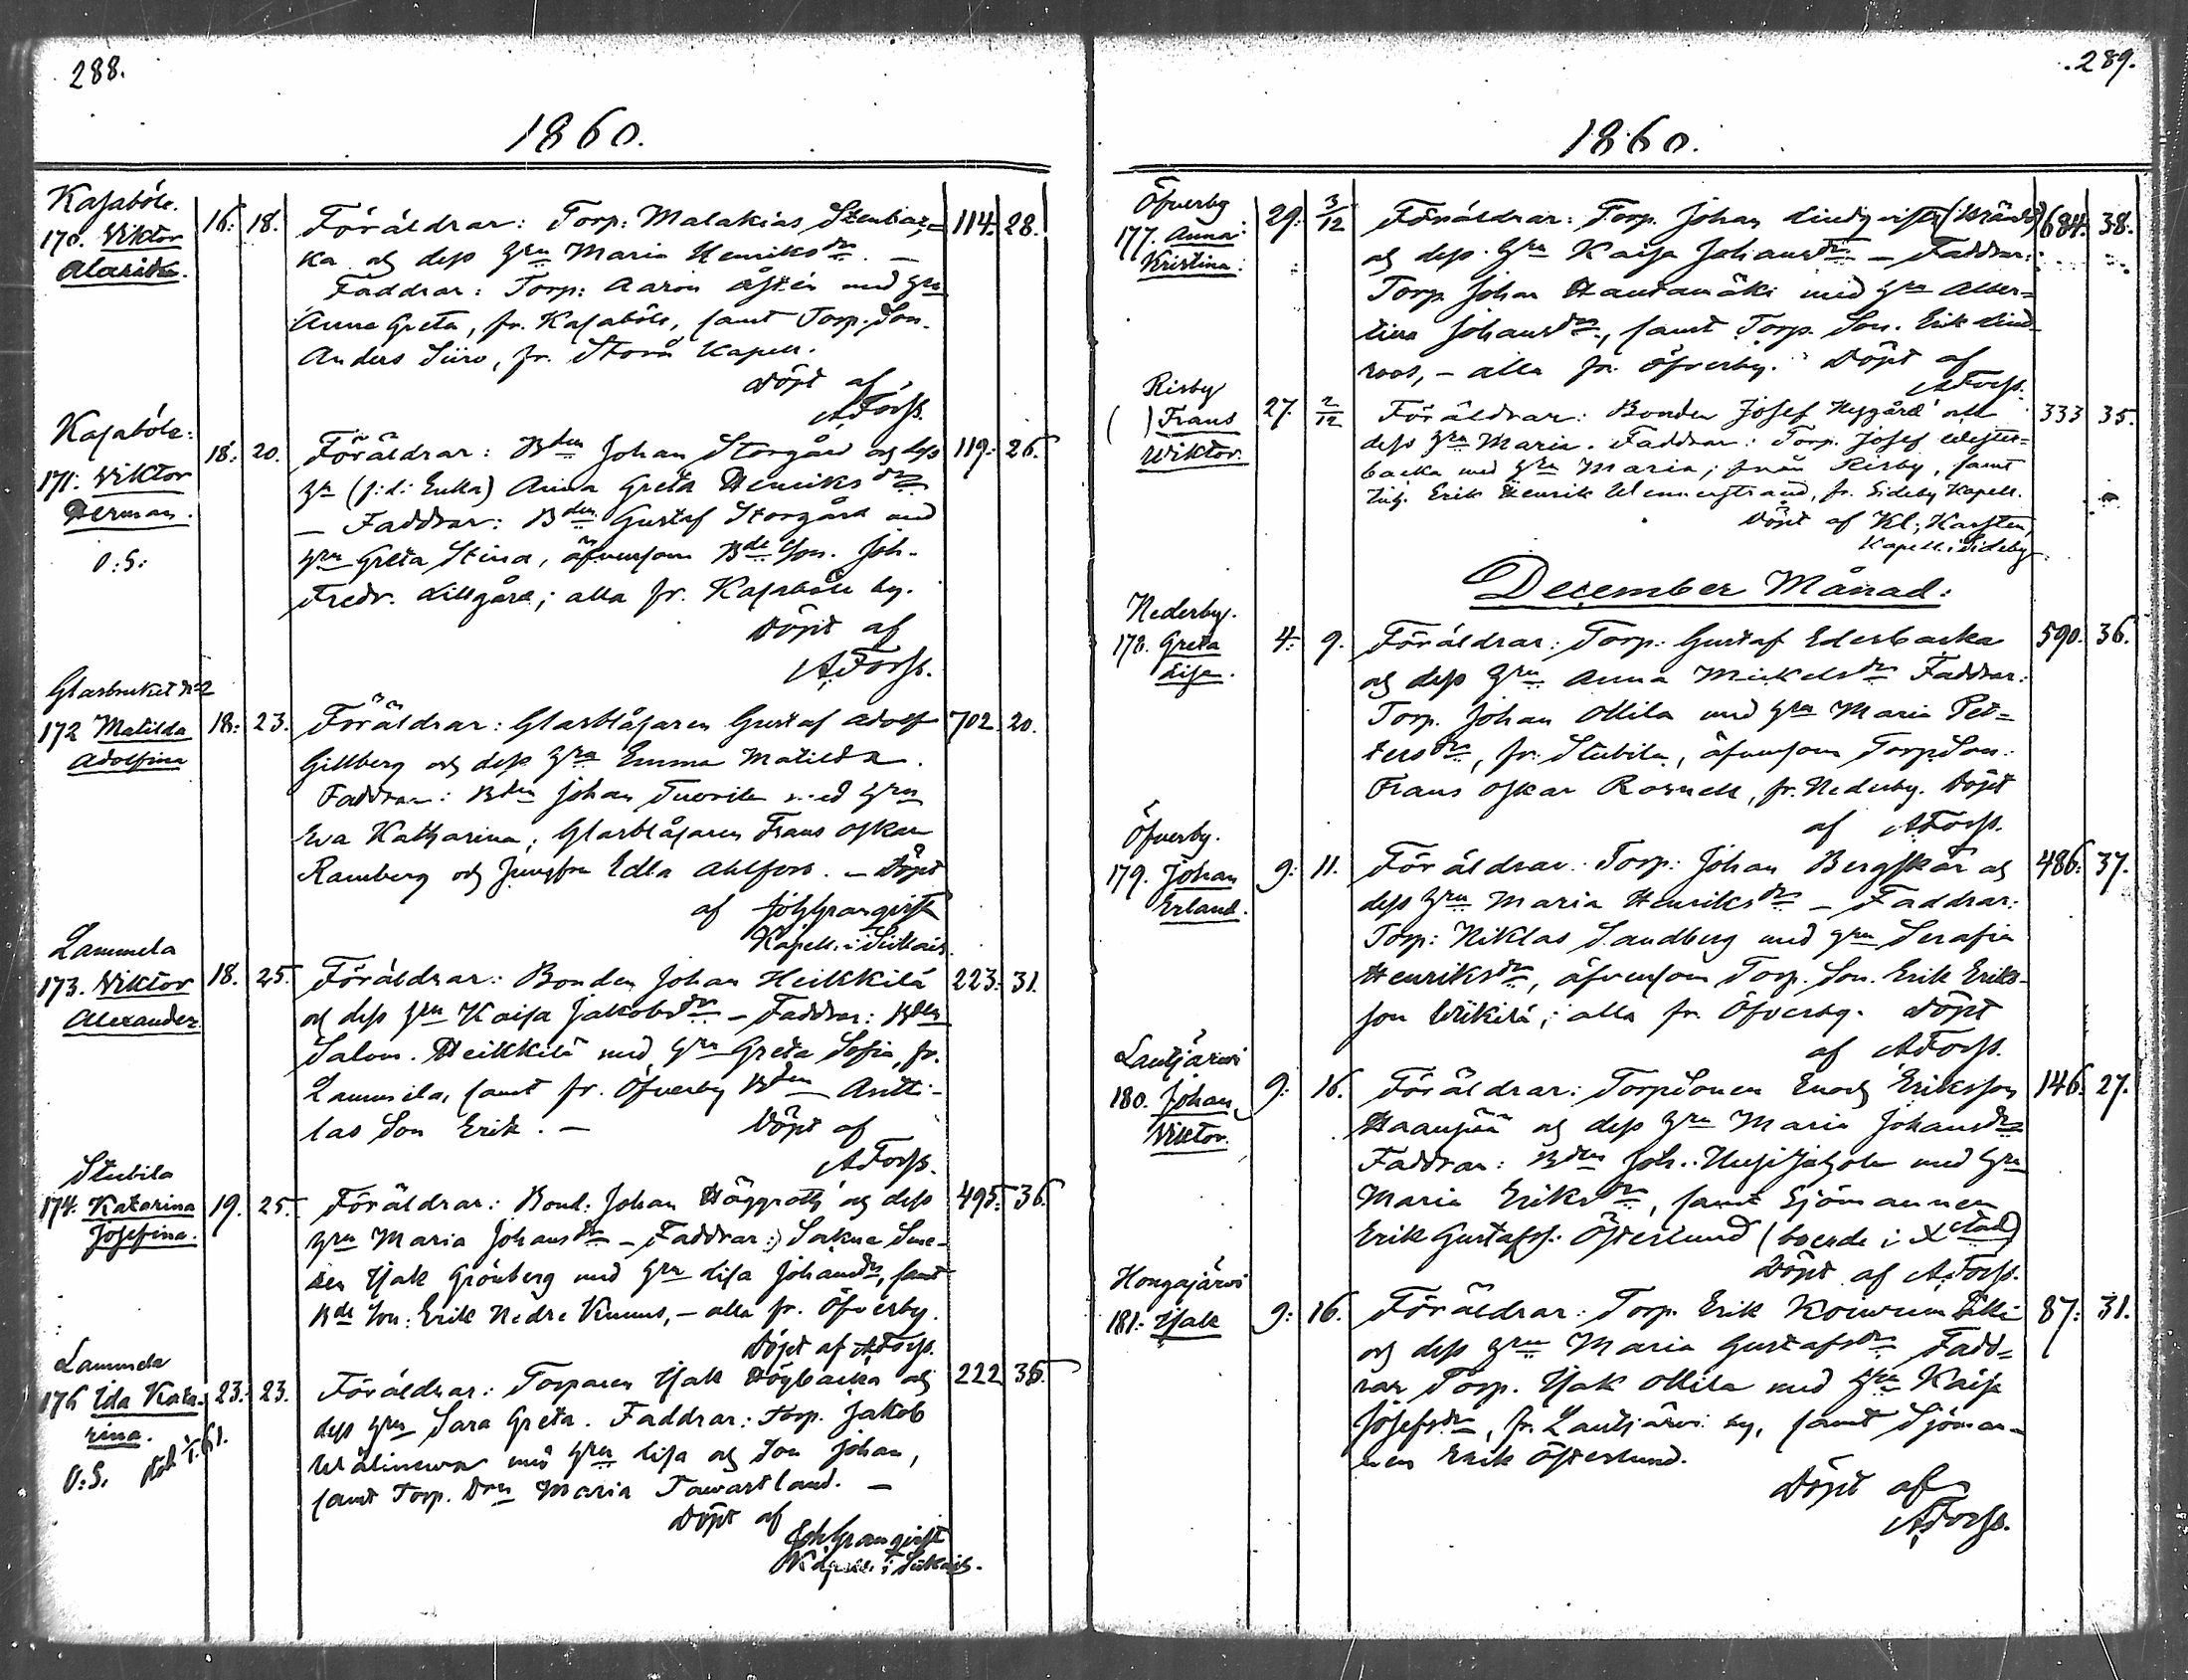 288.
1860.
Kasaböle.
170. Viktor
16. 18. Föräldrar: Torp: Malakias Stenbac-
114. 28.
ka och dess Hru Maria Henriksdr. —
Faddrar: Torp: Aaron med Hru
Anna Greta, fr. Kasaböle, samt Torp. Son.
Anders Siiro, fr. Storå Kapell.
Döpt af
AForss.
Kasaböle:
171. Viktor
Herman.
O.S:
18: 20. Föräldrar: Bden Johan Storgård och dess
119: 26.
Hru (f:d: Enka) Anna Greta Henriksdr
— Faddrar: Bden Gustaf Storgård med
Hru Greta Stina, äfvensom Bde Son. Joh.
Fredr. Lillgård; alla fr. Kasaböle by.
Döpt af
AForss.
Glasbruket No 2
172 Matilda
Adolfina
18: 23. Föräldrar: Glasblåsaren Gustaf Adolf
702. 20.
Gillberg och dess Hru Emma Matilda.
Faddrar: Bden Johan Tuorila med Hru
Eva Katharina; Glasblåsaren Frans Oskar
Ramberg och Jungfru Edla Ahlfors. — Döpt
af Joh Granqvist
Kapell. i Siikais.
Lammela
173. Viktor
Alexander.
18. 25. Föräldrar: Bonden Johan Heikkilä
223. 31.
och dess Hru Kaisa Jakobsdr — Faddrar: Bden
Salom. Heikkilä med Hru Greta Sofia, fr.
Lammela, samt fr. Öfverby Bden Antti-
las Son Erik. — Döpt af
AForss.
Stubila
174. Katarina
Josefina.
19. 25. Föräldrar: Bond: Johan Häggroth och dess
495. 36.
Hru Maria Johansdr — Faddrar: Sakne Sme-
den Isak Grönberg med Hru Lisa Johansdr, samt
Bde Son: Erik Nedre — alla fr. Öfverby.
Döpt af AForss.
Lammela
176 Ida Kata-
rina.
O.S. död 1/1 61.
23. 23. Föräldrar: Torparen Isak Högbacka och
222 36.
dess Hru Sara Greta. Faddrar: Torp. Jakob
med Hru Lisa och Son Johan,
samt Torp. Drn Maria Tawastland. —
Döpt af
Joh Granqvist
Kapell. i Siikais.
289.
1860.
Öfverby
177. Anna
Kristina.
29. 3/12 Föräldrar: Torp. Johan Lindqvist
684. 38.
och dess Hru Kaisa Johansdr. — Faddrar:
Torp. Johan Hautamäki med Hru Alber-
tina Johansdr, samt Torp. Son. Erik Lind-
roos, — alla fr. Öfverby. Döpt af
AForss.
Risby
( ) Frans
Wiktor.
27. 2/12 Föräldrar: Bonden Josef och
333 35.
dess Hru Maria. Faddrar: Torp. Josef Wester-
backa med Hru Maria, från Risby, samt
Erik Henrik Wennerstrand, fr. Sideby Kapell.
Döpt af Kl. Karsten,
Kapell. i Sideby.
December Månad:
Nederby.
178. Greta
Lisa.
4. 9. Föräldrar: Torp: Gustaf Ederbacka
590. 36.
och dess Hru Anna Mickelsdr Faddrar:
Torp. Johan Ollila med Hru Maria Pet-
tersdr, fr. Stubila, äfvensom Torp.Son:
Frans Oskar Rosnell, fr. Nederby. Döpt
af AForss.
Öfverby.
179. Johan
Erland.
9: 11. Föräldrar: Torp: Johan Bergskär och
486. 37.
dess Hru Maria Henriksdr — Faddrar:
Torp: Niklas Sandberg med Hru Serafia
Henriksdr, äfvensom Torp. Son. Erik Eriks-
son; alla fr. Öfverby. Döpt
af AForss.
Lautjärvi
180. Johan
Viktor.
9: 16. Föräldrar: TorpSonen Enoch Eriksson
146. 27.
Haanpää och dess Hru Maria Johansdr
Faddrar: Bden Joh. med Hru
Maria Eriksdr, samt Sjömannen
Erik Gustafss. Österlund (boende i X stad)
Döpt af AForss.
Hongajärvi
181. Isak
9: 16. Föräldrar: Torp. Erik
87: 31.
och dess Hru Maria Gustafsdr Fadd-
rar Torp. Isak Ollila med Hru Kaisa
Josefsdr, fr. Lautjärvi by, samt Sjöman-
nen Erik Österlund.
Döpt af
AForss.